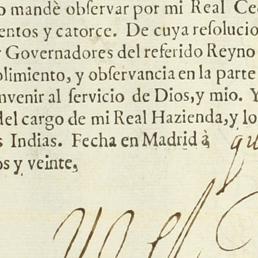 o mandè observar por mi Real Ce
entos y catorce. De cuya resolucio
Governadores del referido Reyno
olimiento, y observancia en la parte
nvenir al servicio de Dios, y mio. Y
del cargo de mi Real Hazienda, y lo
s Indias. Fecha en Madrid à
os y veinte,